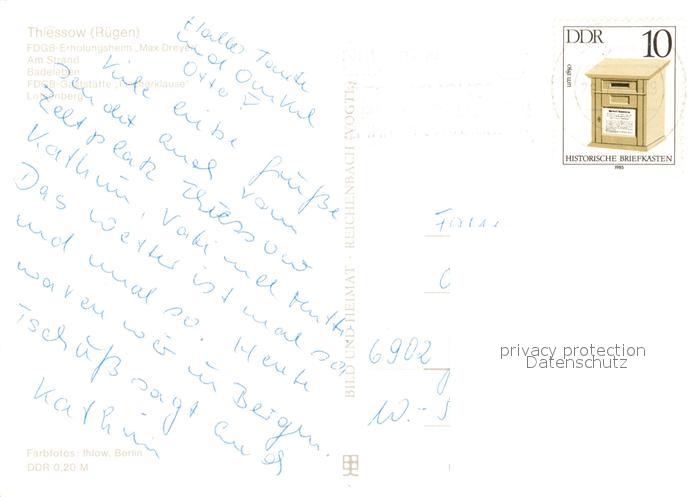 Thiessow (Rügen)
FDGB-Erholungsheim „Max Dreyer
Am Strand
Badeleben
FDGB-Gaststätte
Hallo Tante
und Onkel
Otto!
Viele liebe Grüße
sendet euch vom
Zeltplatz Thiessow
Kathrin, Vati und Mutti
Das Wetter ist mal so
und mal so. Heute
waren wir in Bergen.
Tschüß sagt euch
Kathrin
Farbfotos: Ihlow, Berlin
DDR 0,20 M
BILD UND HEIMAT · REICHENBACH (VOGTL)
DDR 10
um 1860
HISTORISCHE BRIEFKASTEN
1985
Fam
6902
W.-
privacy protection
Datenschutz